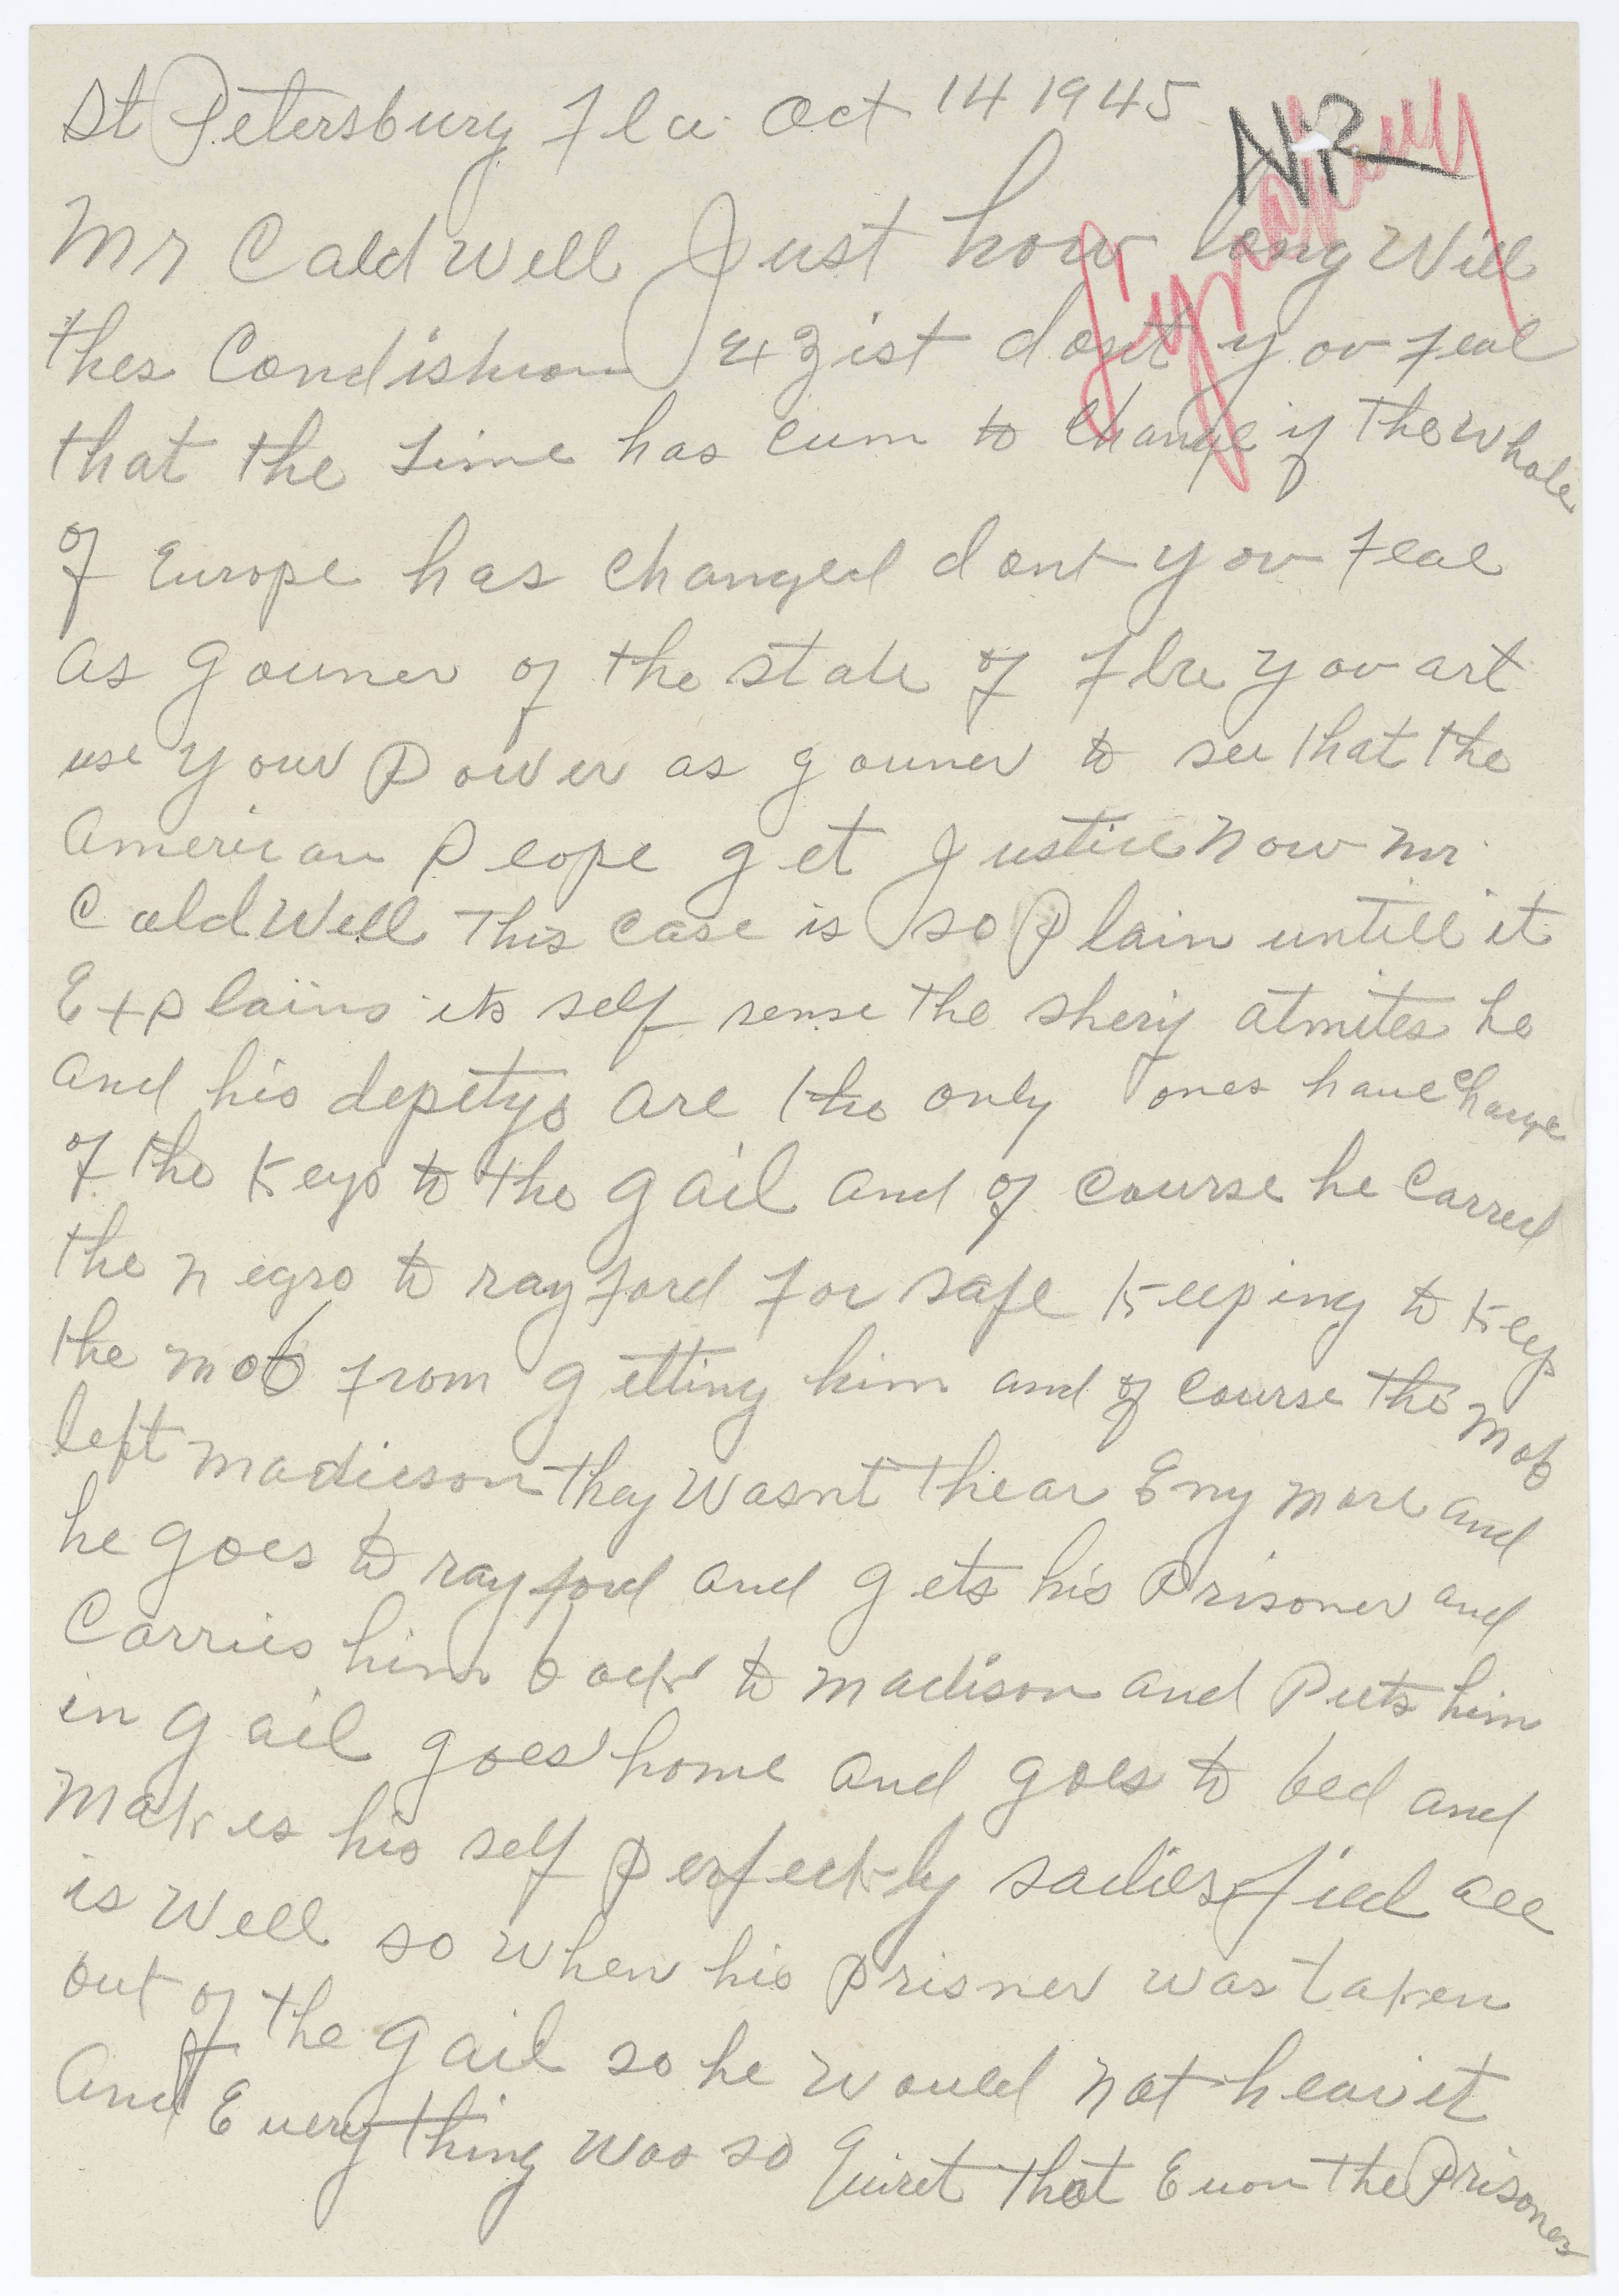 St Petersburg Fla Oct 14 1945
NR
Mr Caldwell Just how long Will
thes Condishion Exzist dont you feal
that the time has cum to change if the whole
of Europe has changed dont you feal
as gouner of the state of Fla you art
use your Power as gouner to see that the
American Peope get Justice now mr.
Caldwell This case is so Plain untill it
Explains its self sense the sherif atmites he
and his depetys are the only ones have charge
of the keys to the gail and of course he carred
the negro to rayford for safe keeping to keep
the mob from getting him and of course the mob
left madieson they wasnt thear Eny more and
he goes to rayford and gets his Prisoner and
Carries him back to madison and Puts him
in gail goes home and goes to bed and
Makes his self perfectkly sadiesfied all
is well so when his prisner was taken
out of the gail so he would not hear it
And Everything was so Quiret that Evon the Prisoners